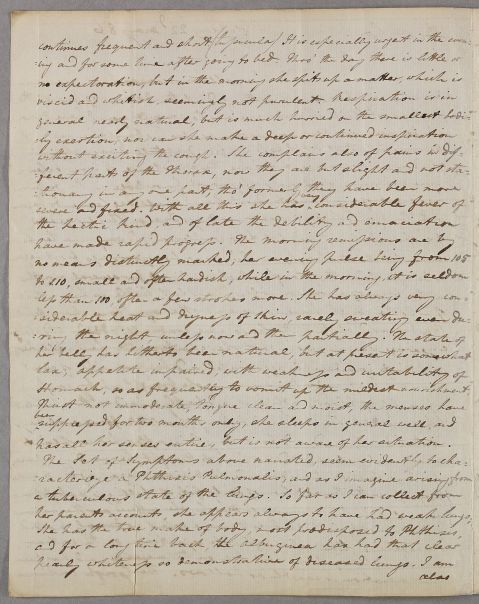 continues frequent and short (in secula) It is especially urgent in the even-
ing and for some time after going to bed. Thro' the day there is little or
no expectoration, but in the morning she spits up a matter, which is
viscid and whitish, seemingly not purulent. Respiration is in
general nearly natural, but is much hurried on the smallest bodi-
ly exertion, nor can she make a deep or continued inspiration
without exciting the cough. She complains also of pains in dif-
ferent parts of the Thorax, now they are but slight and not sta-
tionary in any one part, tho' formerly they have been more
severe and fixed. With all this she has considerable fever of
the hectic kind, and of late the debility and emaciation
have made rapid progress. The morning remissions are by
no means distinctly marked, her evening pulse being from 105
to 110, small and often hardish, while in the morning it is seldom
less than 100 often a few strokes more. She has always very con-
siderable heat and dryness of skin, rarely sweating even du-
ring the night unless now and then partially. The state of
her belly has hitherto been natural, but at present is somewhat
lax, appetite impaired, with weakness and irritability of
Stomach, so as frequently to vomit up the mildest nourishment.
Thirst not immoderate, tongue clean and moist, the menses have
been suppressed for two months only, she sleeps in general well, and
has all her senses entire, but is not aware of her situation.
The Set of Symptoms above narrated, seem evidently to cha-
racterize a Phthisis Pulmonalis, and as I imagine arising from
a tuberculous state of the lungs. So far as I can collect from
her parents accounts she appears always to have had weak lungs,
She has the true make of body, most predisposed to Phthisis,
and for a long time back the albuginea has had that clear
pearly whiteness so demonstrative of diseased lungs. I am
alas